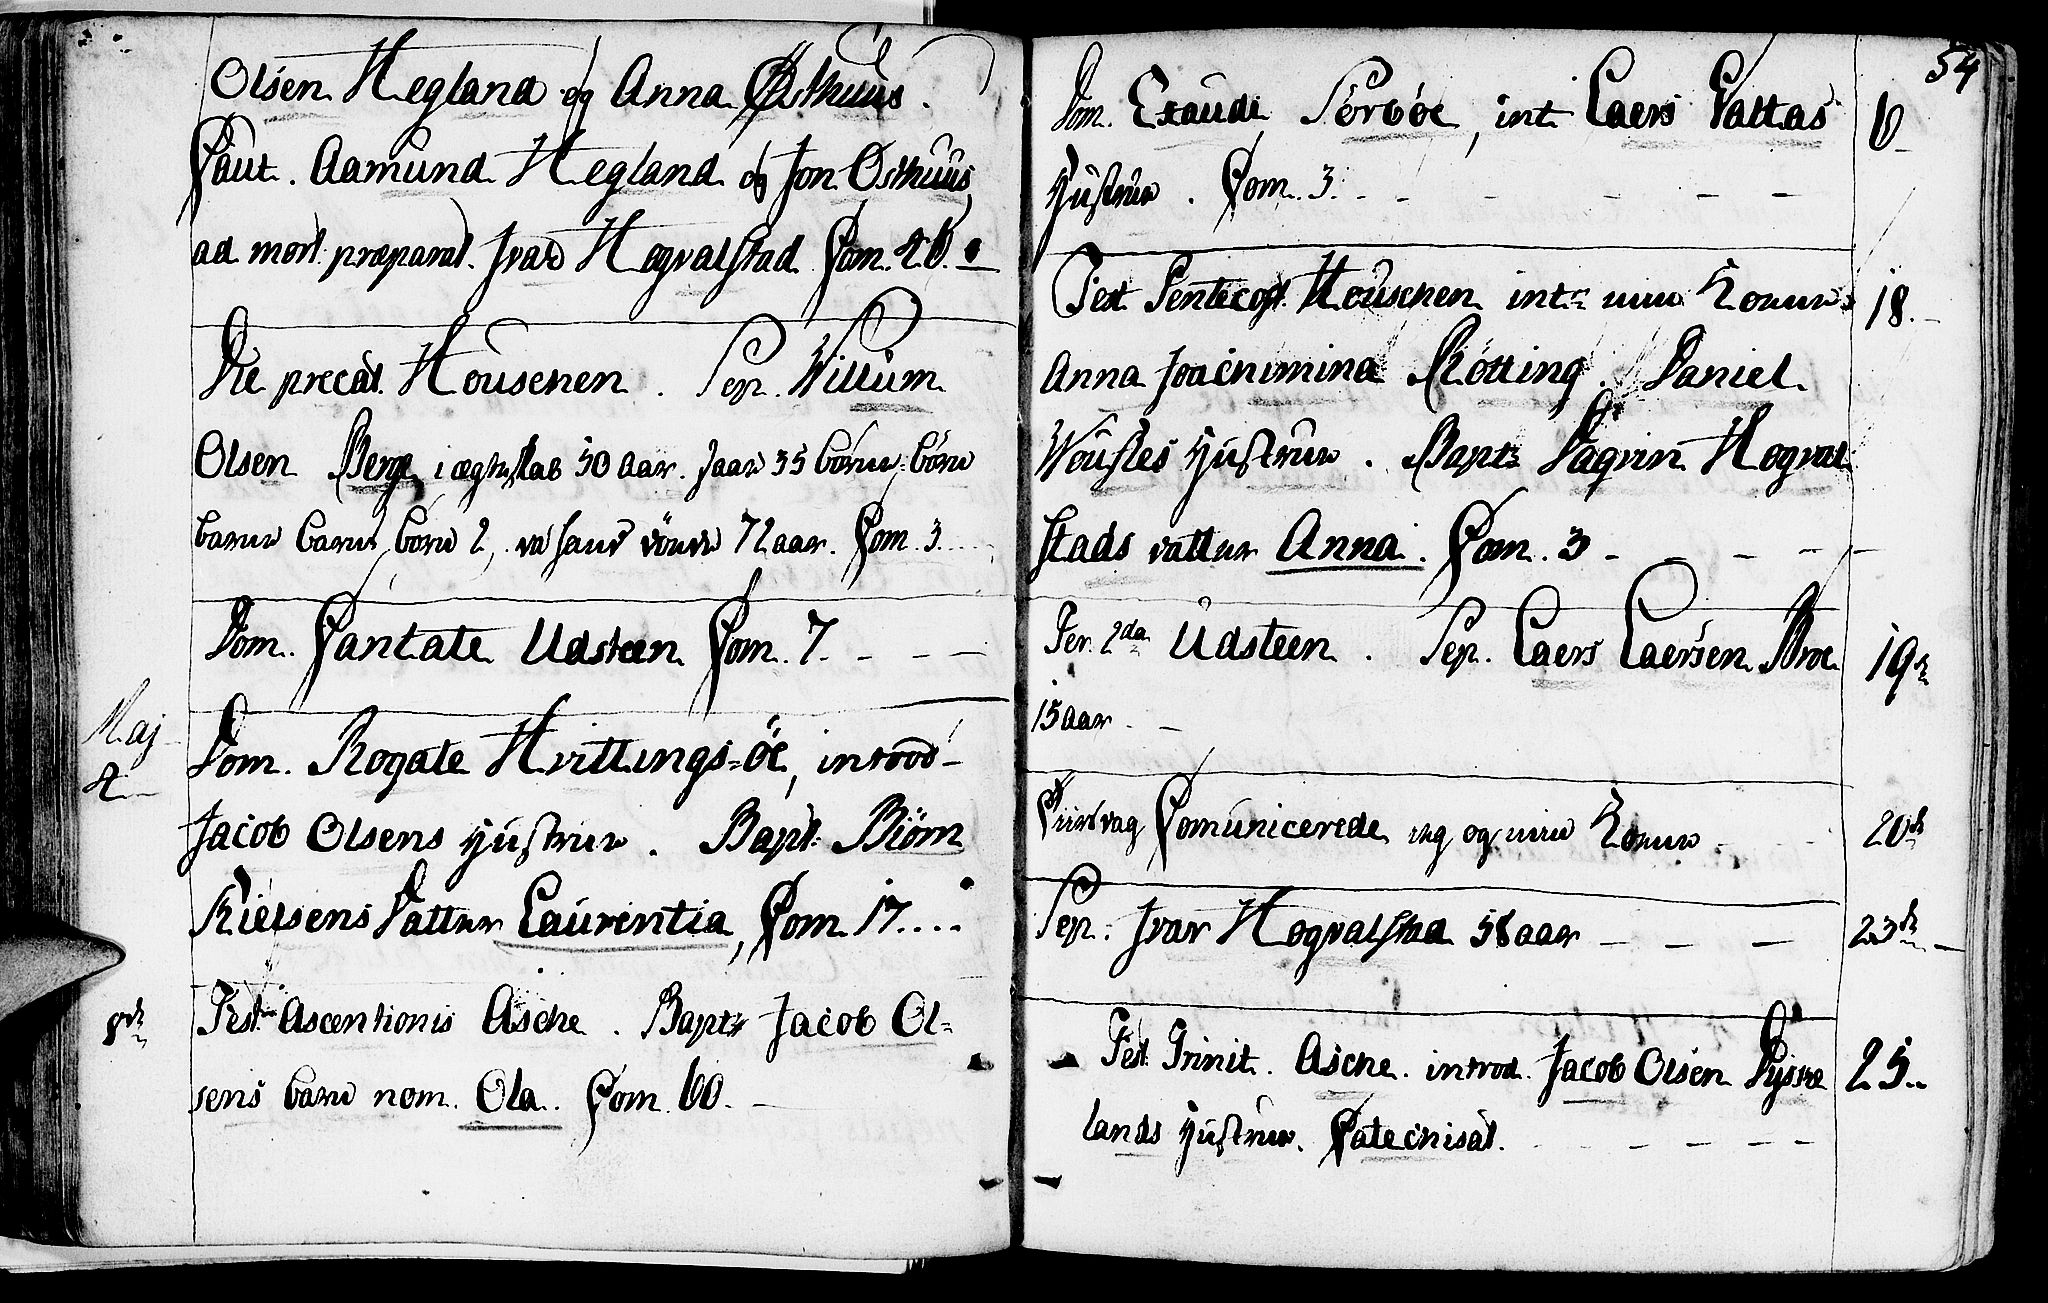 Olsen Hegland og Anna Østhuus.
Caut. Aamund Hegland og Jon Østhuus,
ad mort. præparat. Ivar Hogvalstad Com. 26.
Die precat. Houschen. Sep. Willum
Olsen Berge, i ægteskab 50 aar. haar 35 börn, börne
barne barns börn 2, da hans döde 72 aar. Com. 3...
Dom. Cantate Udsteen Com. 7. - - -
Maj
4. Dom. Rogate Hvittings-öe, introd-
Jacob Olsens hustrue. Bapt. Biörn
Nielsens Datter Laurentia, Com. 17....
8de Fest Ascentionis Asche. Bapt. Jacob Ol=
sens barn nom. Ola. Com. 60. -
54
Dom. Exaudi, Sörböe, int. Laers Dattas
hustrue. Com. 3. - - - - -
Fest Pentecost. Houschen int. min Kone 18.
Anna Joachimina Rötting. Daniel
hustrue. Bapt. Dagvin Hogval
stads datter Anna. Com. 3 - - - - -
Fer. 2da Udsteen. Sep. Laers Laersen Broe 19de
15 aar. -
Comunicerede ieg og min Kone 20de
Sep. Ivar Hogvalstad 58 aar - - - 23de
Fest. Trinit. Asche. introd. Jacob Olsen Vysse 25.
lands hustrue. Catechisat. - - - - -